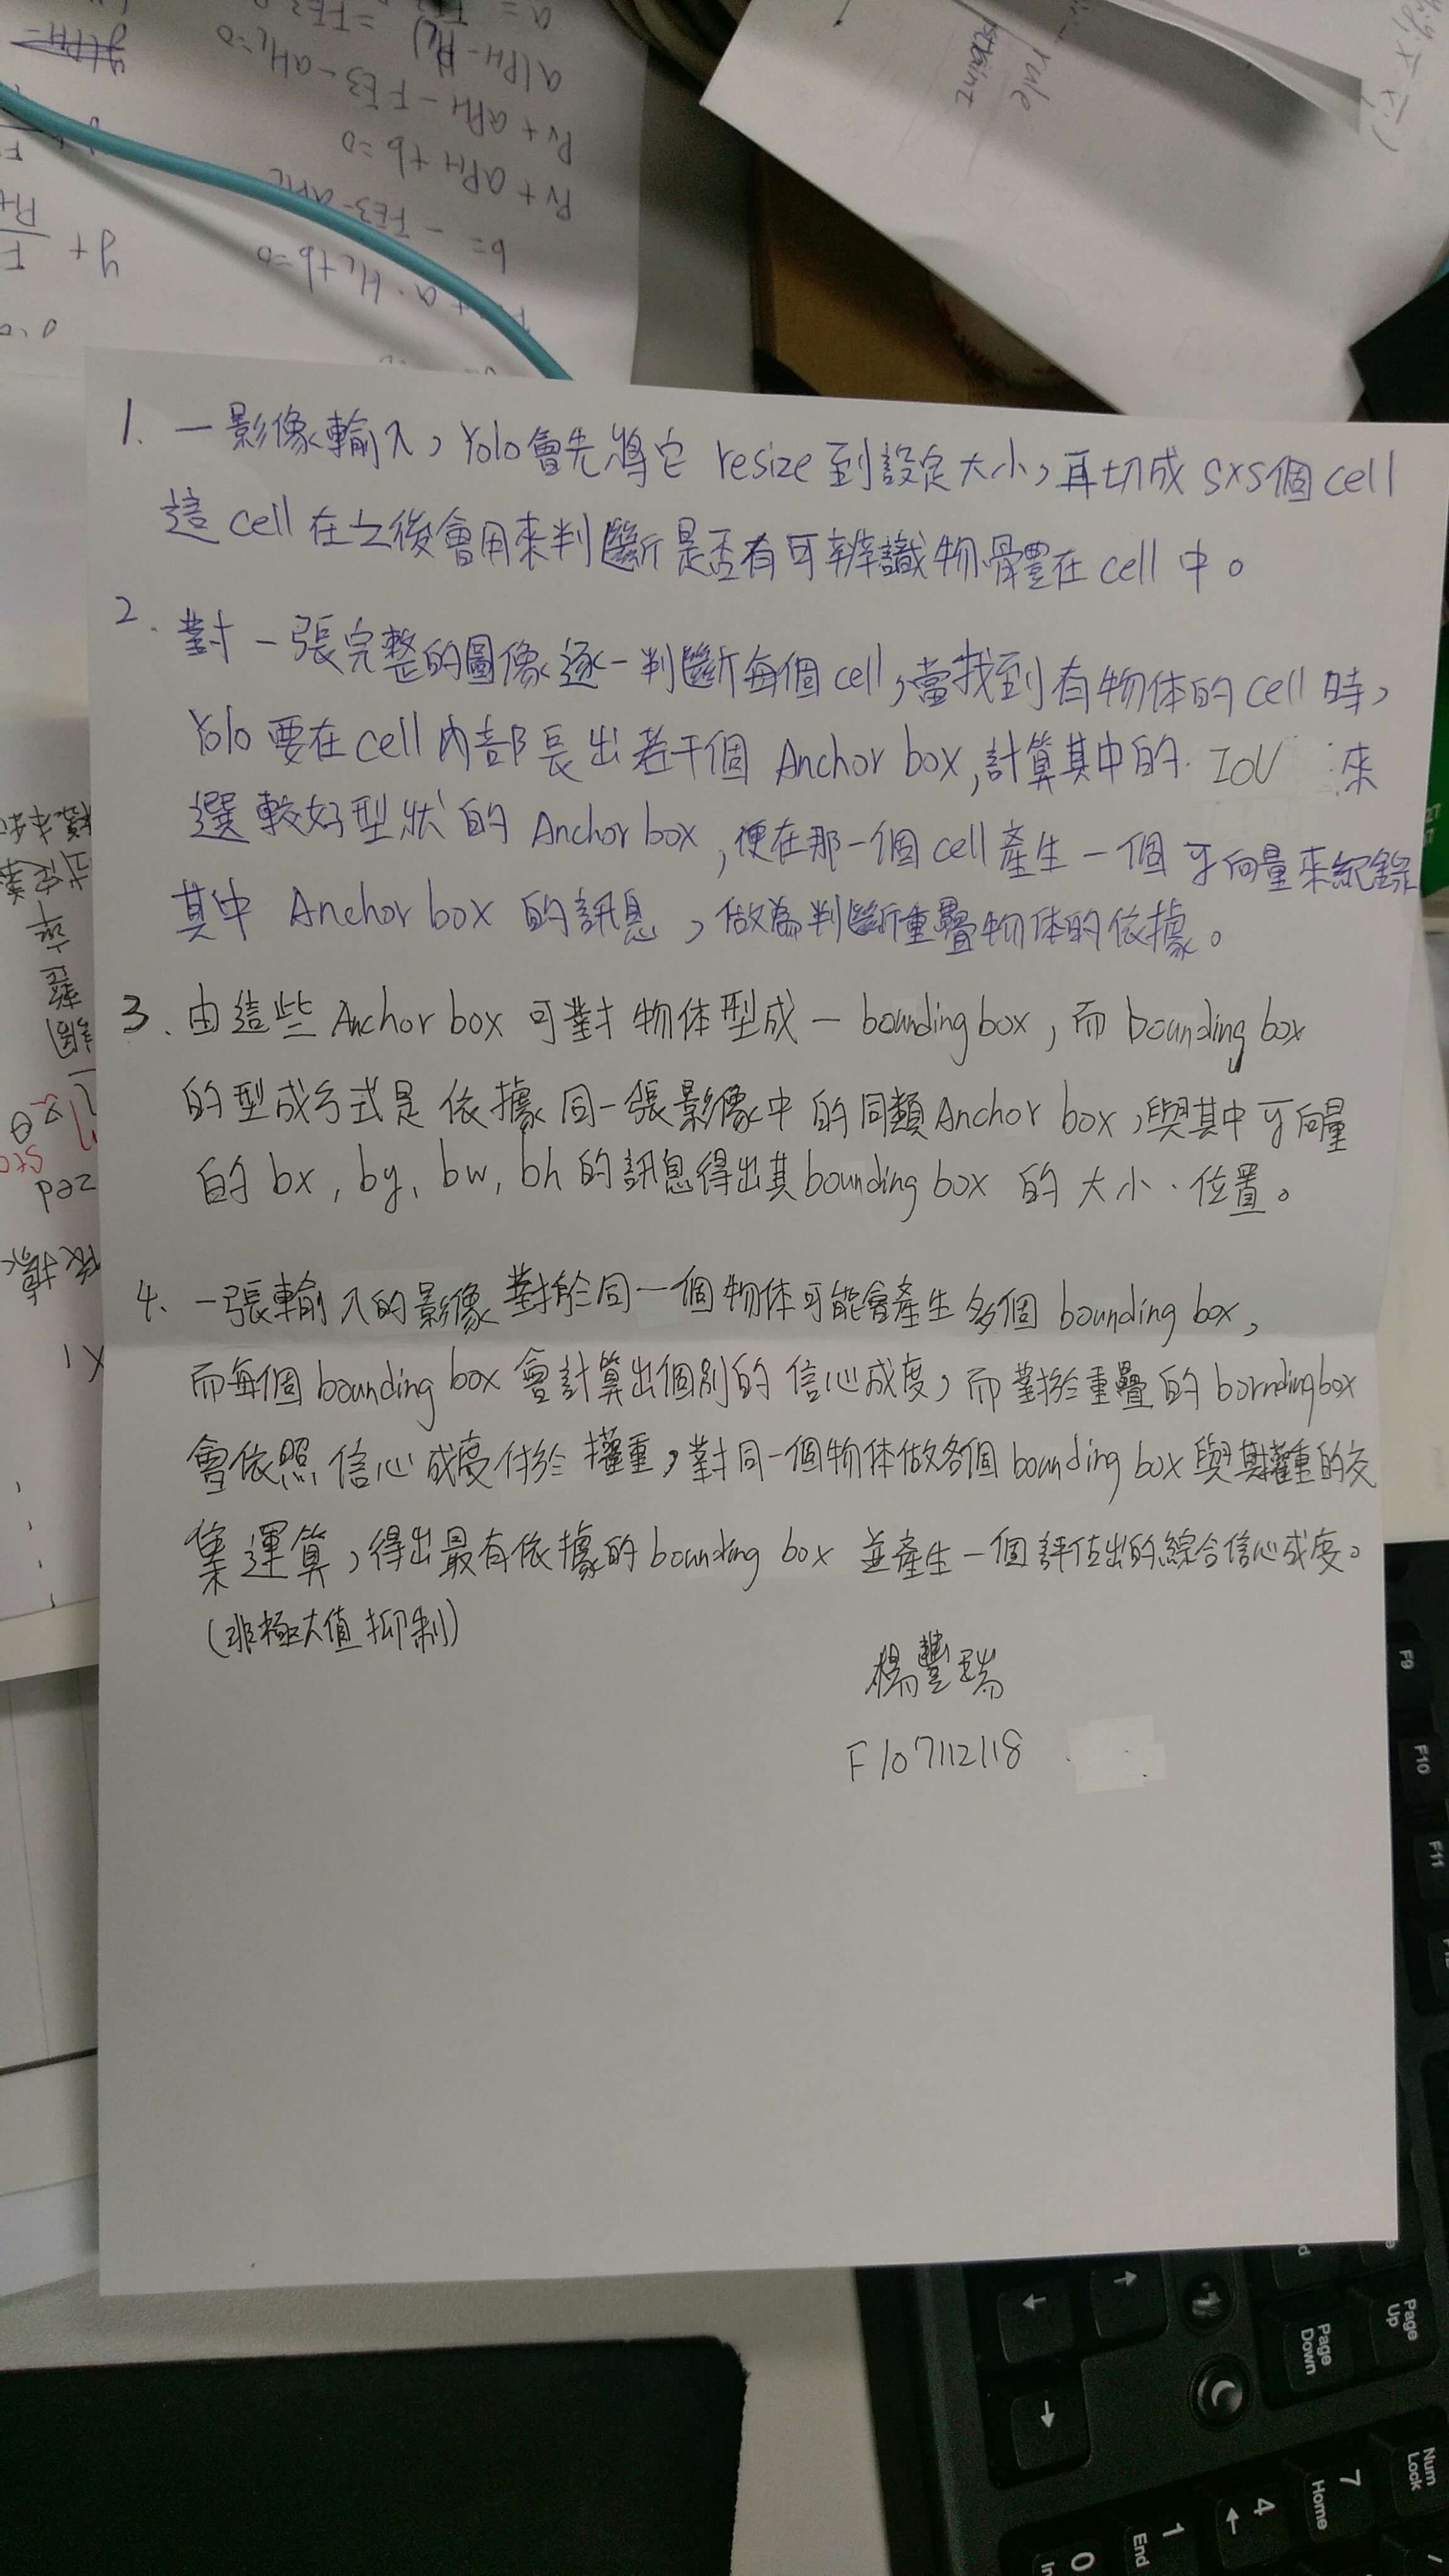 1. 一影像輸入，Yolo會先將它 resize 到設定大小，再切成 SxS個 cell
這 cell 在之後會用來判斷是否有可辨識物體在 cell 中。
2. 對一張完整的圖像逐一判斷每個 cell，當找到有物体的 cell 時，
Yolo 要在 cell 內部長出若干個 Anchor box，計算其中的 IoU 來
選較好型狀的 Anchor box，便在那一個 cell 產生一個 y向量來紀錄
其中 Anchor box 的訊息，做為判斷重疊物体的依據。
3. 由這些 Anchor box 可對物体型成一 bounding box，而 bounding box
的型成方式是依據同一張影像中的同類 Anchor box，與其中 y向量
的 bx, by, bw, bh 的訊息得出其 bounding box 的大小、位置。
4. 一張輸入的影像對於同一個物体可能會產生多個 bounding box，
而每個 bounding box 會計算出個別的信心成度，而對於重疊的 borndingbox
會依照信心成度付於權重，對同一個物体做各個 bounding box 與其權重的交
集運算，得出最有依據的 bounding box 並產生一個評估出的綜合信心成度。
(非極大值抑制)
楊豐瑞
F107112118
rule
y+
b=
Pv + aPH + b =0
F9
F10
F11
Page Up
Page Down
Num Lock
7 Home
4
1 End
0